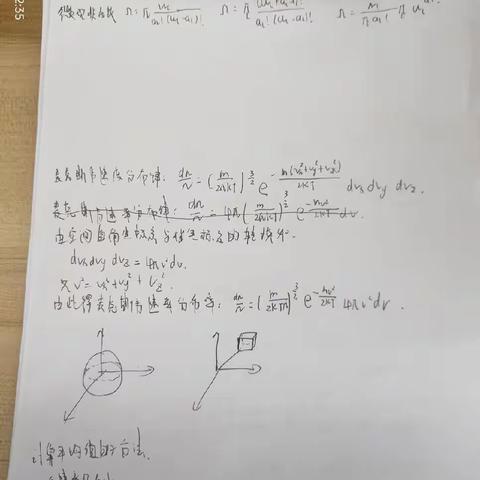 微观状态数 Ω = ∏ ωₗ!/(aₗ!(ωₗ-aₗ)!)
麦克斯韦速度分布律: dn/n = (m/2πkT)^(3/2) e^(-m(vx²+vy²+vz²)/2kT) dvx dvy dvz.
麦克斯韦速率分布律: dn/n = 4π(m/2πkT)^(3/2) e^(-mv²/2kT) dv.
由空间直角坐标系与球坐标系的转换
dvx dvy dvz = 4πv²dv.
又 v² = vx²+vy²+vz².
由此得麦克斯韦速率分布律: dn/n = (m/2kTπ)^(3/2) e^(-mv²/2kT) 4πv²dv.
计算平均值的方法.